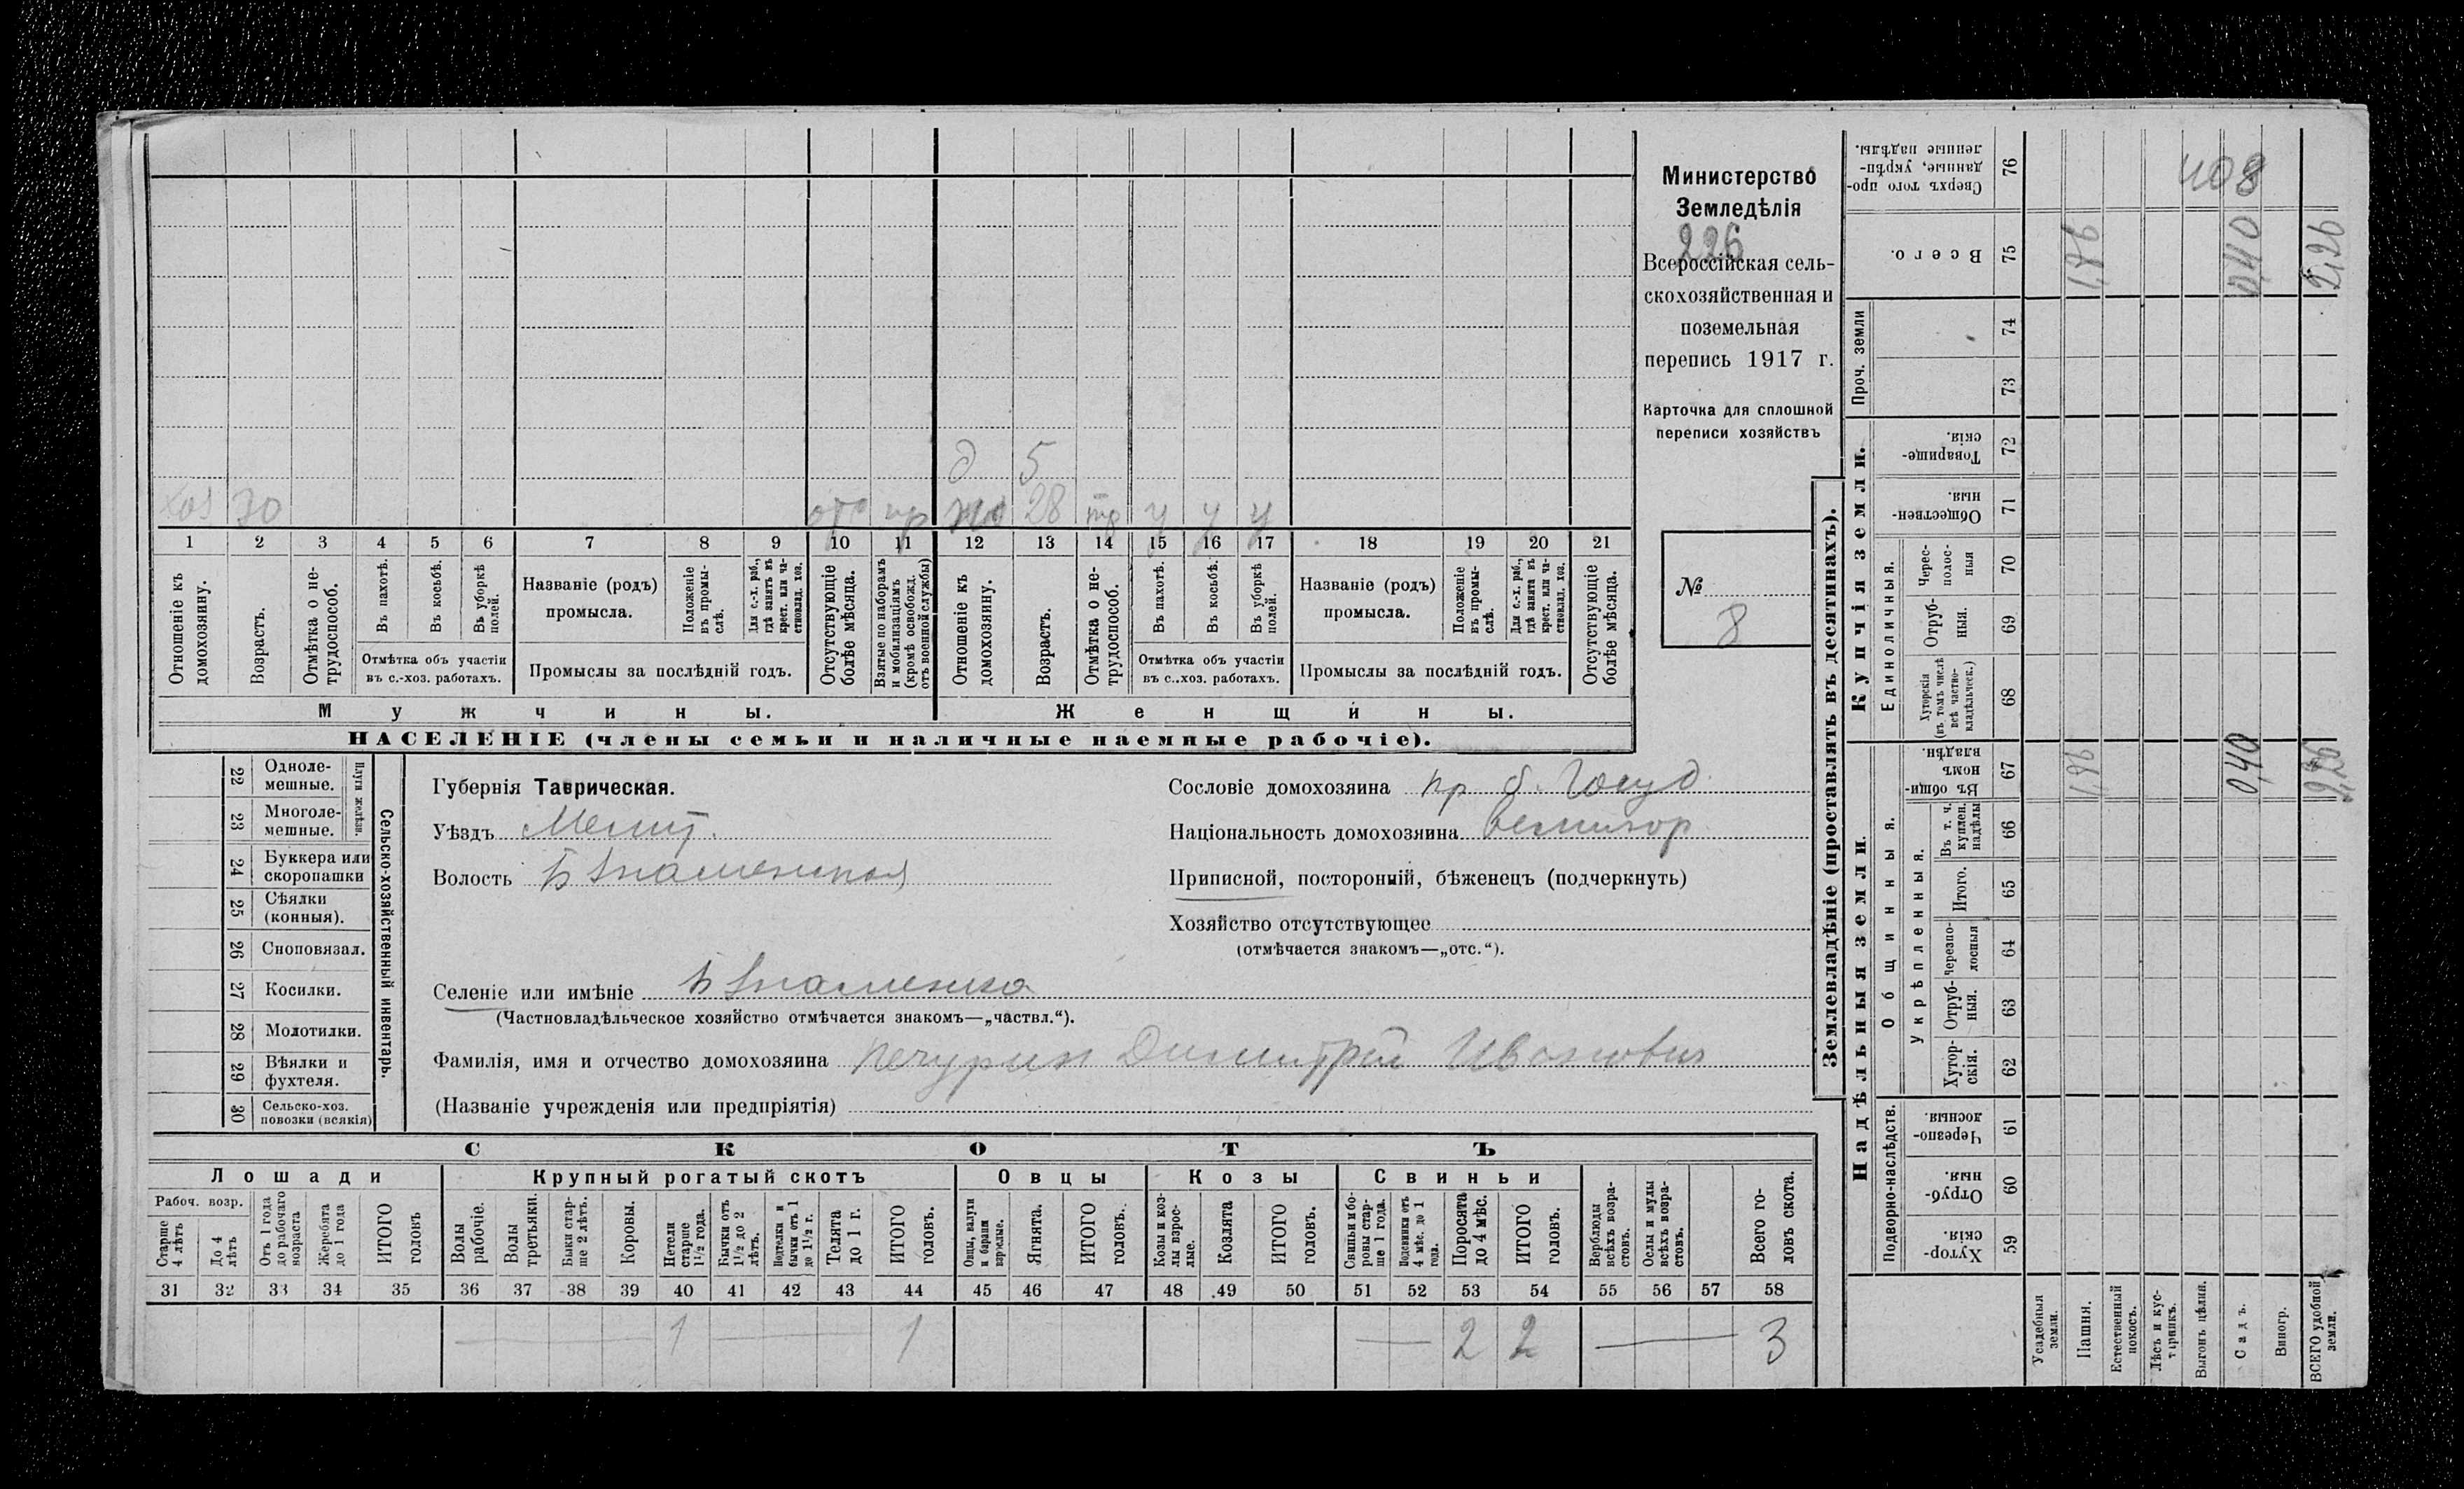 Министерство
Земледѣлія
226
Всероссійская сель-
скохозяйственная и
поземельная
перепись 1917 г.
Карточка для сплошной
переписи хозяйствъ
№
8
д 5
хоз 30 отс пр жен 28 тр у у у
1 2 3 4 5 6 7 8 9 10 11 12 13 14 15 16 17 18 19 20 21
Отношеніе къ домохозяину.
Возрастъ.
Отмѣтка о не-трудоспособ.
Въ пахотѣ.
Въ косьбѣ.
Въ уборкѣ полей.
Отмѣтка объ участіи
въ с.-хоз. работахъ.
Названіе (родъ)
промысла.
Положеніе въ промы-слѣ.
Для с.-х. раб., гдѣ занятъ въ крест. или ча-стновлад. хоз.
Промыслы за послѣдній годъ.
Отсутствующіе болѣе мѣсяца.
Взятые по наборамъ и мобилизаціямъ (кромѣ освобожд. отъ военной службы)
Отношеніе къ домохозяину.
Возрастъ.
Отмѣтка о не-трудоспособ.
Въ пахотѣ.
Въ косьбѣ.
Въ уборкѣ полей.
Отмѣтка объ участіи
въ с..хоз. работахъ.
Названіе (родъ)
промысла.
Положеніе въ промы-слѣ.
Для с.-х. раб., гдѣ занята въ крест. или ча-стновлад. хоз.
Промыслы за послѣдній годъ.
Отсутствующіе болѣе мѣсяца.
Мужчины.
Женщины.
НАСЕЛЕНІЕ (члены семьи и наличные наемные рабочіе).
22 Одноле-мешные.
23 Многоле-мешные.
Плуги желѣзн.
24 Буккера или скоропашки
25 Сѣялки (конныя).
26 Сноповязал.
27 Косилки.
28 Молотилки.
29 Вѣялки и фухтеля.
30 Сельско-хоз. повозки (всякія)
Сельско-хозяйственный инвентарь.
Губернія Таврическая.
Уѣздъ Мелит.
Волость Б Знаменская
Селеніе или имѣніе Б Знаменка
(Частновладѣльческое хозяйство отмѣчается знакомъ—„частвл.“).
Фамилія, имя и отчество домохозяина Печурин Димитрій Иванович
(Названіе учрежденія или предпріятія)
Сословіе домохозяина кр б. Госуд
Національность домохозяина великор
Приписной, посторонній, бѣженецъ (подчеркнуть)
Хозяйство отсутствующее
(отмѣчается знакомъ—„отс.“).
СКОТЪ
Лошади
Крупный рогатый скотъ
Овцы
Козы
Свиньи
Рабоч. возр.
Старше 4 лѣтъ
До 4 лѣтъ
Отъ 1 года до рабочаго возраста
Жеребята до 1 года
ИТОГО головъ
Волы рабочіе.
Волы третьяки.
Быки стар-ше 2 лѣтъ.
Коровы.
Нетели старше 1½ года.
Бычки отъ 1½ до 2 лѣтъ.
Подтелки и бычки отъ 1 до 1½ г.
Телята до 1 г.
ИТОГО головъ.
Овцы, валухи и бараны взрослые.
Ягнята.
ИТОГО головъ.
Козы и коз-лы взрос-лые.
Козлята
ИТОГО головъ.
Свиньи и бо-ровы стар-ше 1 года.
Подсвинки отъ 4 мѣс. до 1 года.
Поросята до 4 мѣс.
ИТОГО головъ.
Верблюды всѣхъ возра-стовъ.
Ослы и мулы всѣхъ возра-стовъ.
Всего го-ловъ скота.
31 32 33 34 35 36 37 38 39 40 41 42 43 44 45 46 47 48 49 50 51 52 53 54 55 56 57 58
— 1 — 1 — 2 2 — 3
Землевладѣніе (проставлять въ десятинахъ).
Надѣльныя земли.
Купчія земли.
Проч. земли
Подворно-наслѣдств.
Общинныя.
Укрѣпленныя.
Единоличныя.
Сверхъ того про-данные, укрѣп-ленные надѣлы. 76
Всего. 75
74
73
Товарище-скія. 72
Обществен-ныя. 71
Черес-полос-ныя 70
Отруб-ныя. 69
Хуторскія (въ томъ числѣ всѣ частно-владѣльческ.) 68
Въ общин-номъ владѣн. 67
Въ т. ч. куплен. надѣлы 66
Итого. 65
Черезпо-лосныя 64
Отруб-ныя. 63
Хутор-скія. 62
Черезпо-лосныя. 61
Отруб-ныя. 60
Хутор-скія. 59
408
1,86 0,40 2,26
1,86 0,40 2,26
Усадебныя земли.
Пашня.
Естественный покосъ.
Лѣсъ и кус-тарникъ.
Выгонъ цѣлин.
Садъ.
Виногр.
ВСЕГО удобной земли.